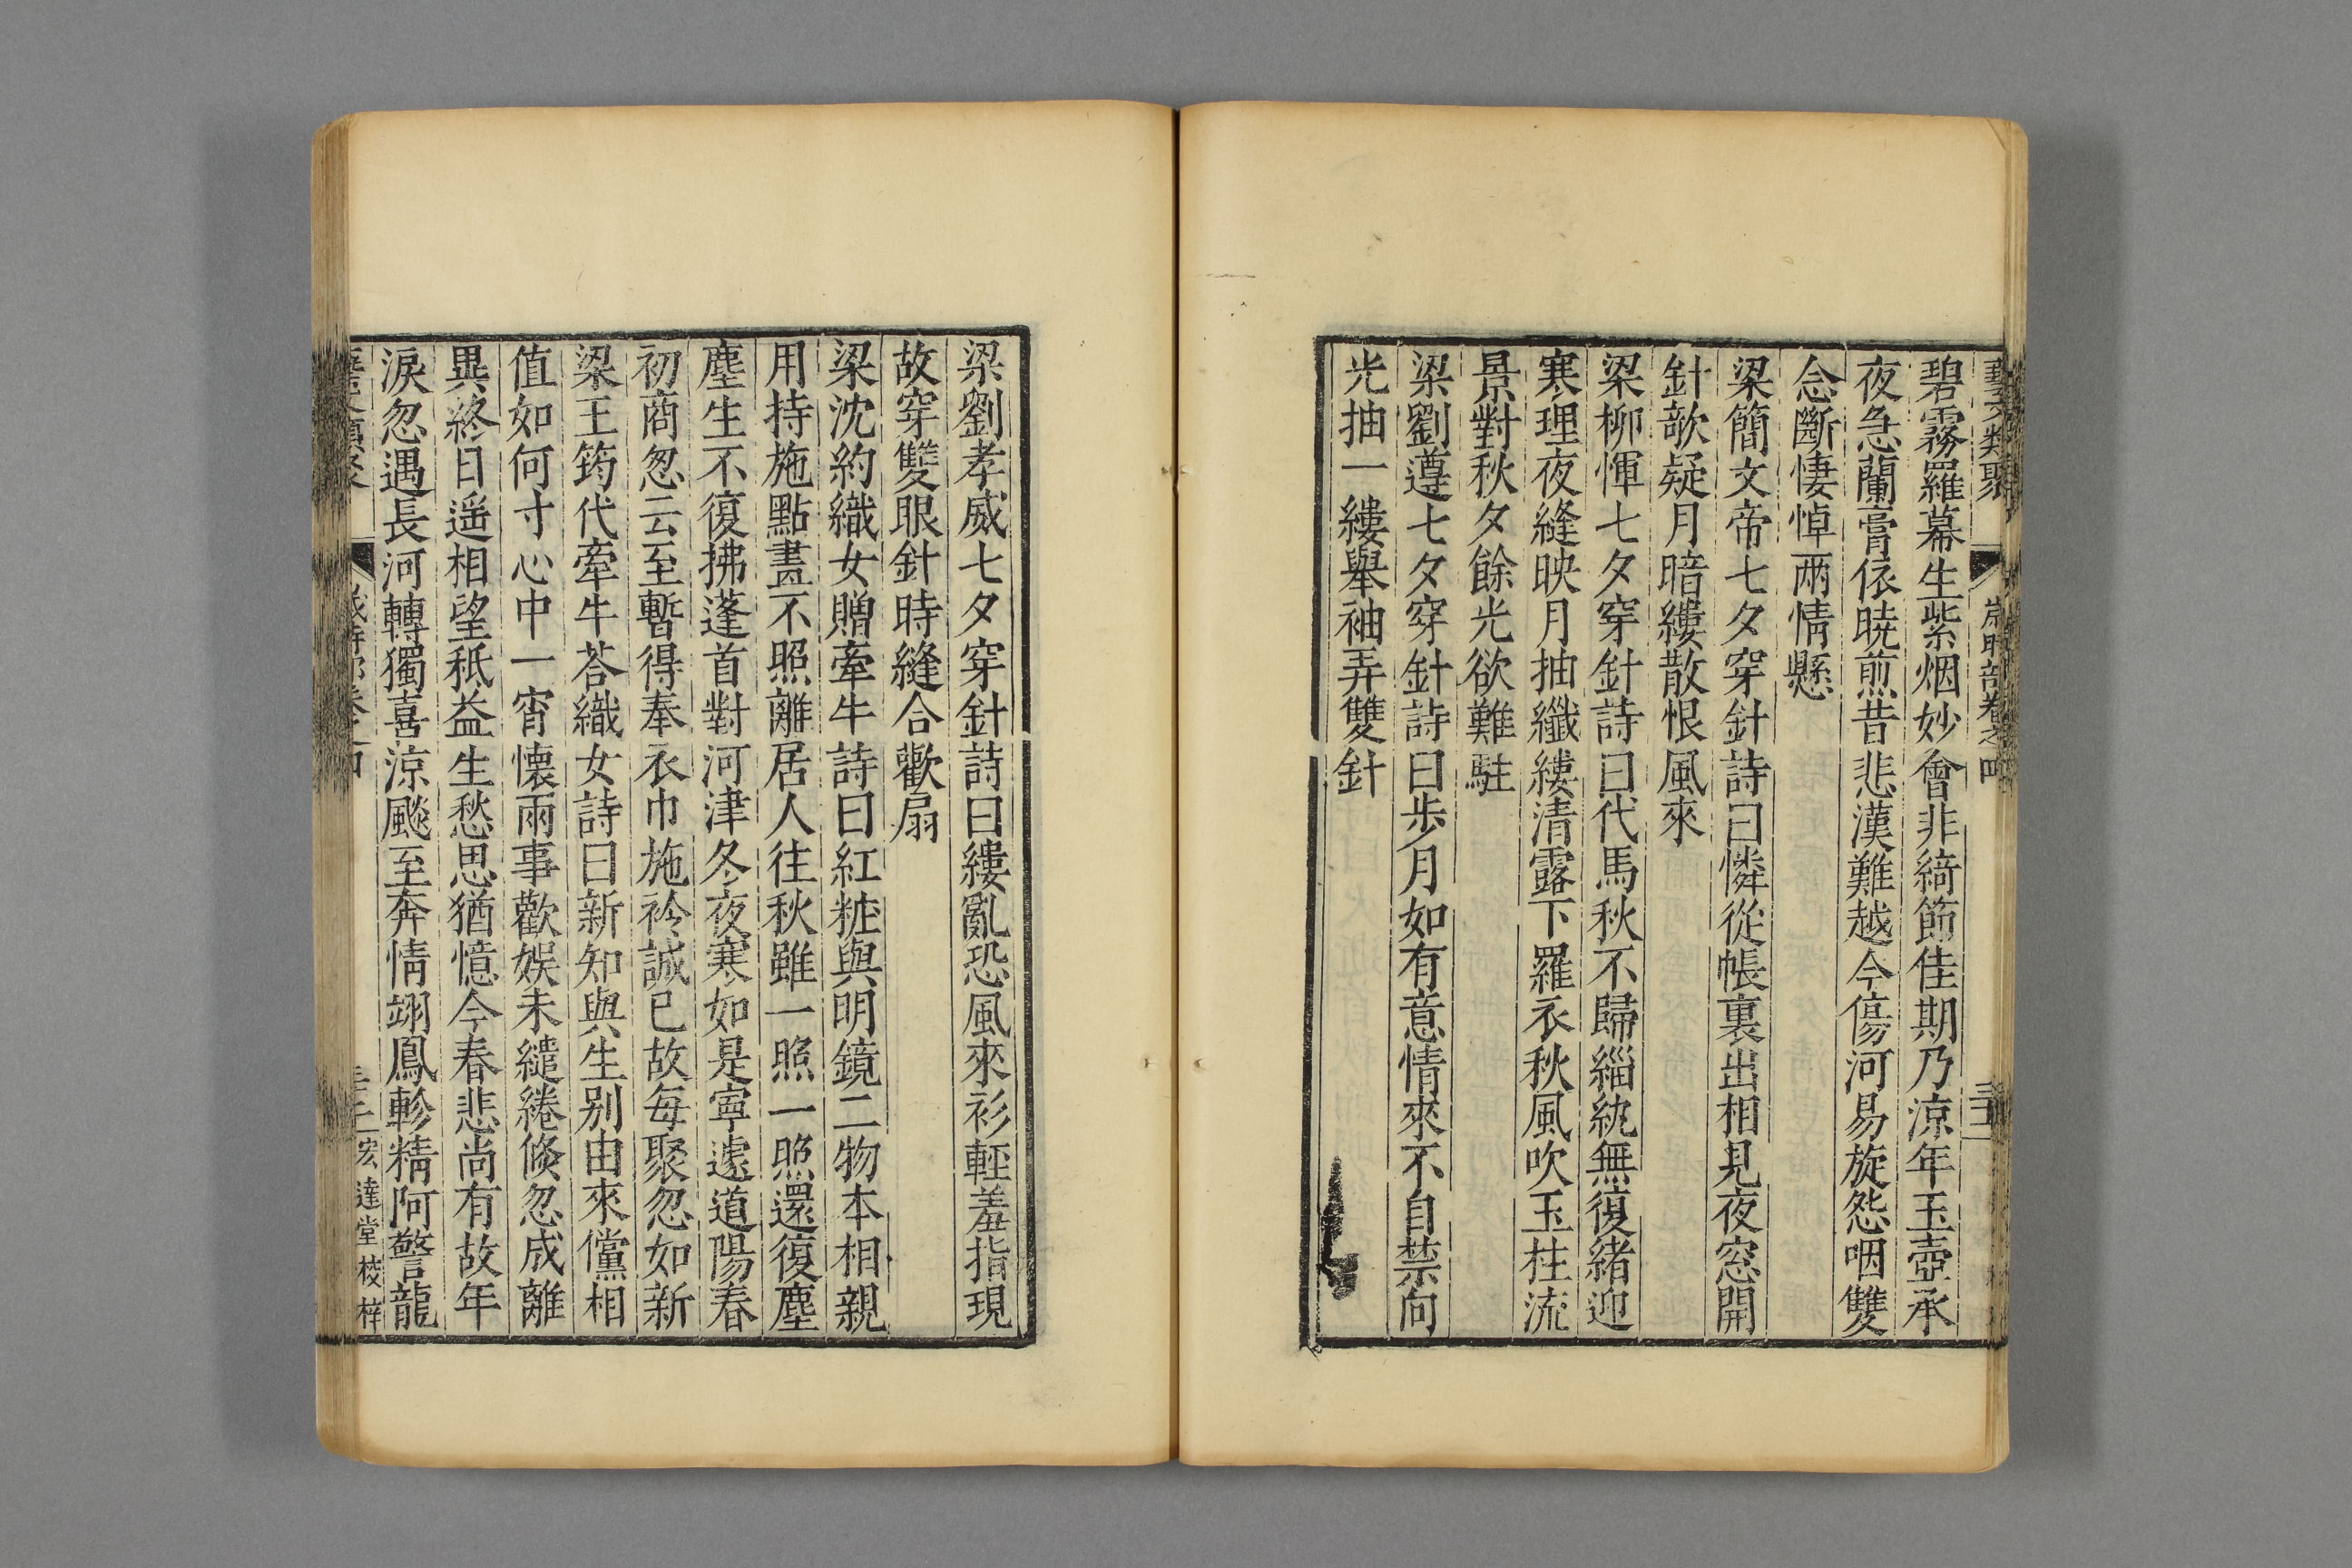 藝文類聚 歲時部卷之四
碧霧羅幕生紫烟妙會非綺節佳期乃涼年玉壺承
夜急蘭膏依曉煎昔悲漢難越今傷河易旋怨咽雙
念斷悽悼兩情懸
梁簡文帝七夕穿針詩曰憐從帳裏出相見夜窓開
針歌疑月暗縷散恨風來
梁柳惲七夕穿針詩曰代馬秋不歸緇紈無復緒迎
寒理夜縫映月抽纖縷清露下羅衣秋風吹玉柱流
景對秋夕餘光欲難駐
梁劉遵七夕穿針詩曰步月如有意情來不自禁向
光抽一縷舉袖弄雙針
梁劉孝威七夕穿針詩曰縷亂恐風來衫輕羞指現
故穿雙眼針時縫合歡扇
梁沈約織女贈牽牛詩曰紅粧與明鏡二物本相親
用持施點畫不照離居人往秋雖一照一照還復塵
塵生不復拂蓬首對河津冬夜寒如是寧遽道陽春
初商忽云至暫得奉衣巾施衿誠已故每聚忽如新
梁王筠代牽牛荅織女詩曰新知與生别由來儻相
值如何寸心中一宵懷兩事歡娛未繾綣倐忽成離
異終日遥相望秖益生愁思猶憶今春悲尚有故年
淚忽遇長河轉獨喜涼飈至奔情翊鳳軫精阿警龍
宏達堂校梓